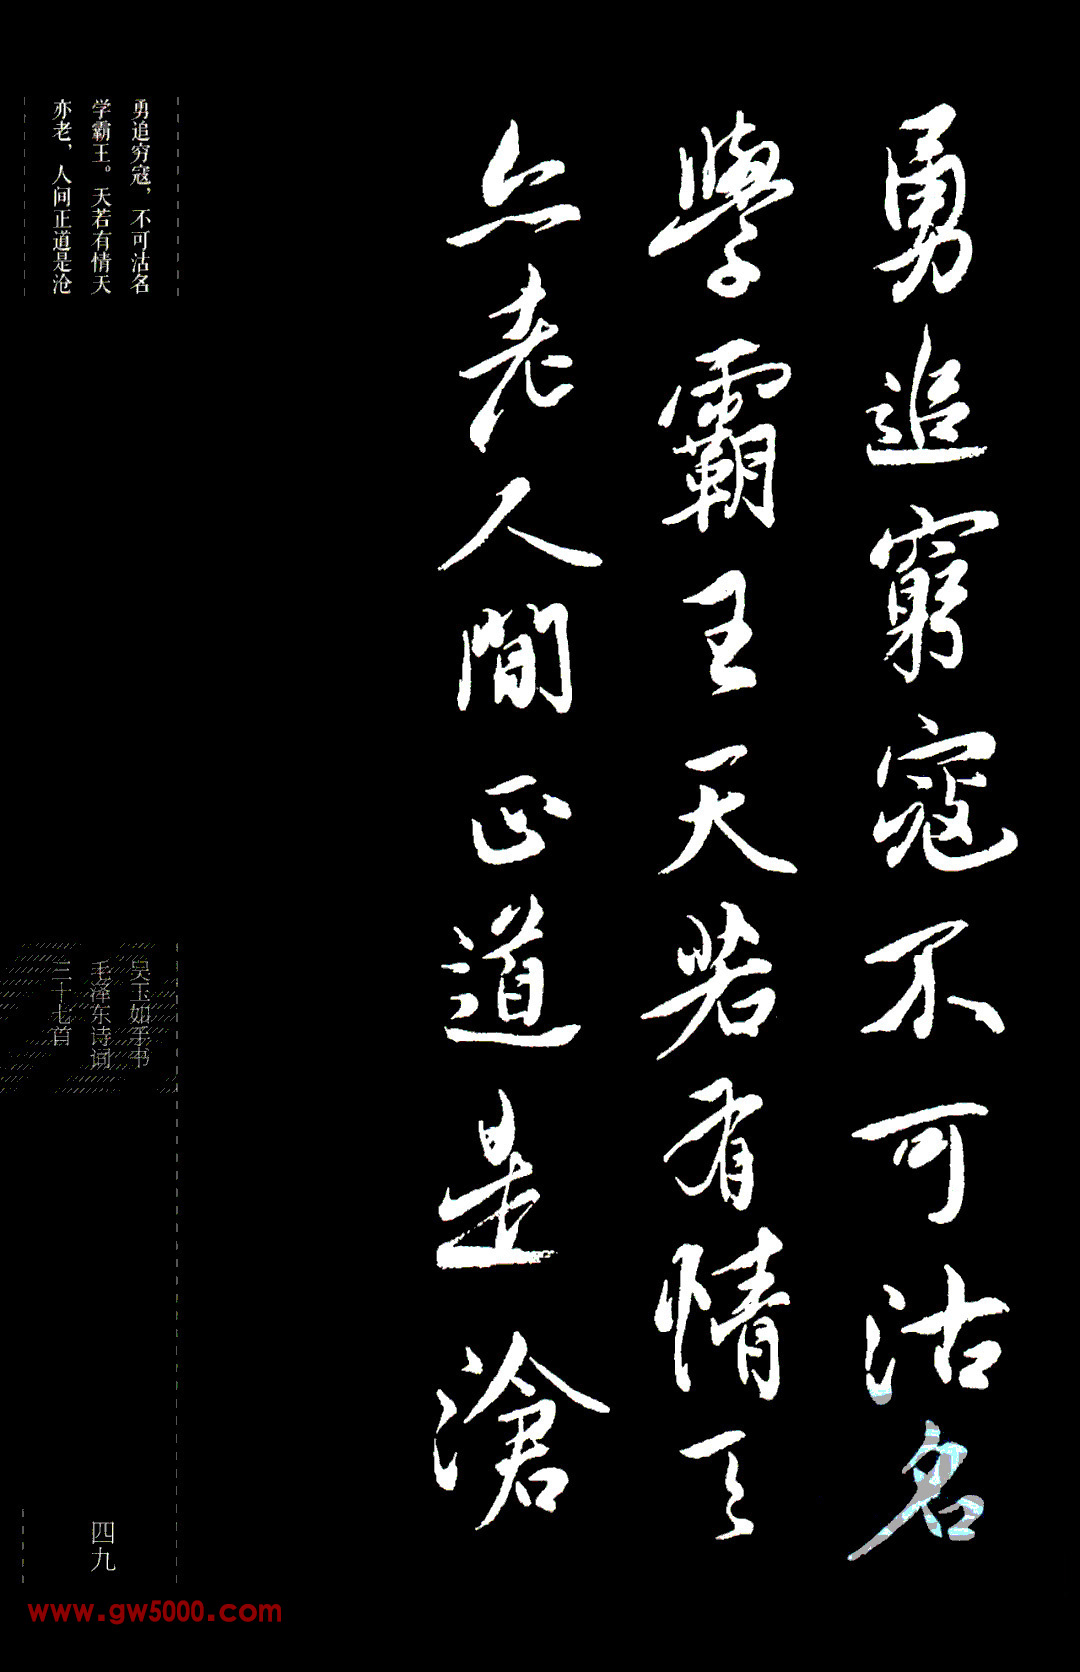 勇追窮寇不可沽名
學霸王天若有情天
亦老人間正道是滄
勇追穷寇，不可沽名
学霸王。天若有情天
亦老，人间正道是沧
吴玉如手书
毛泽东诗词
三十七首
四九
www.gw5000.com